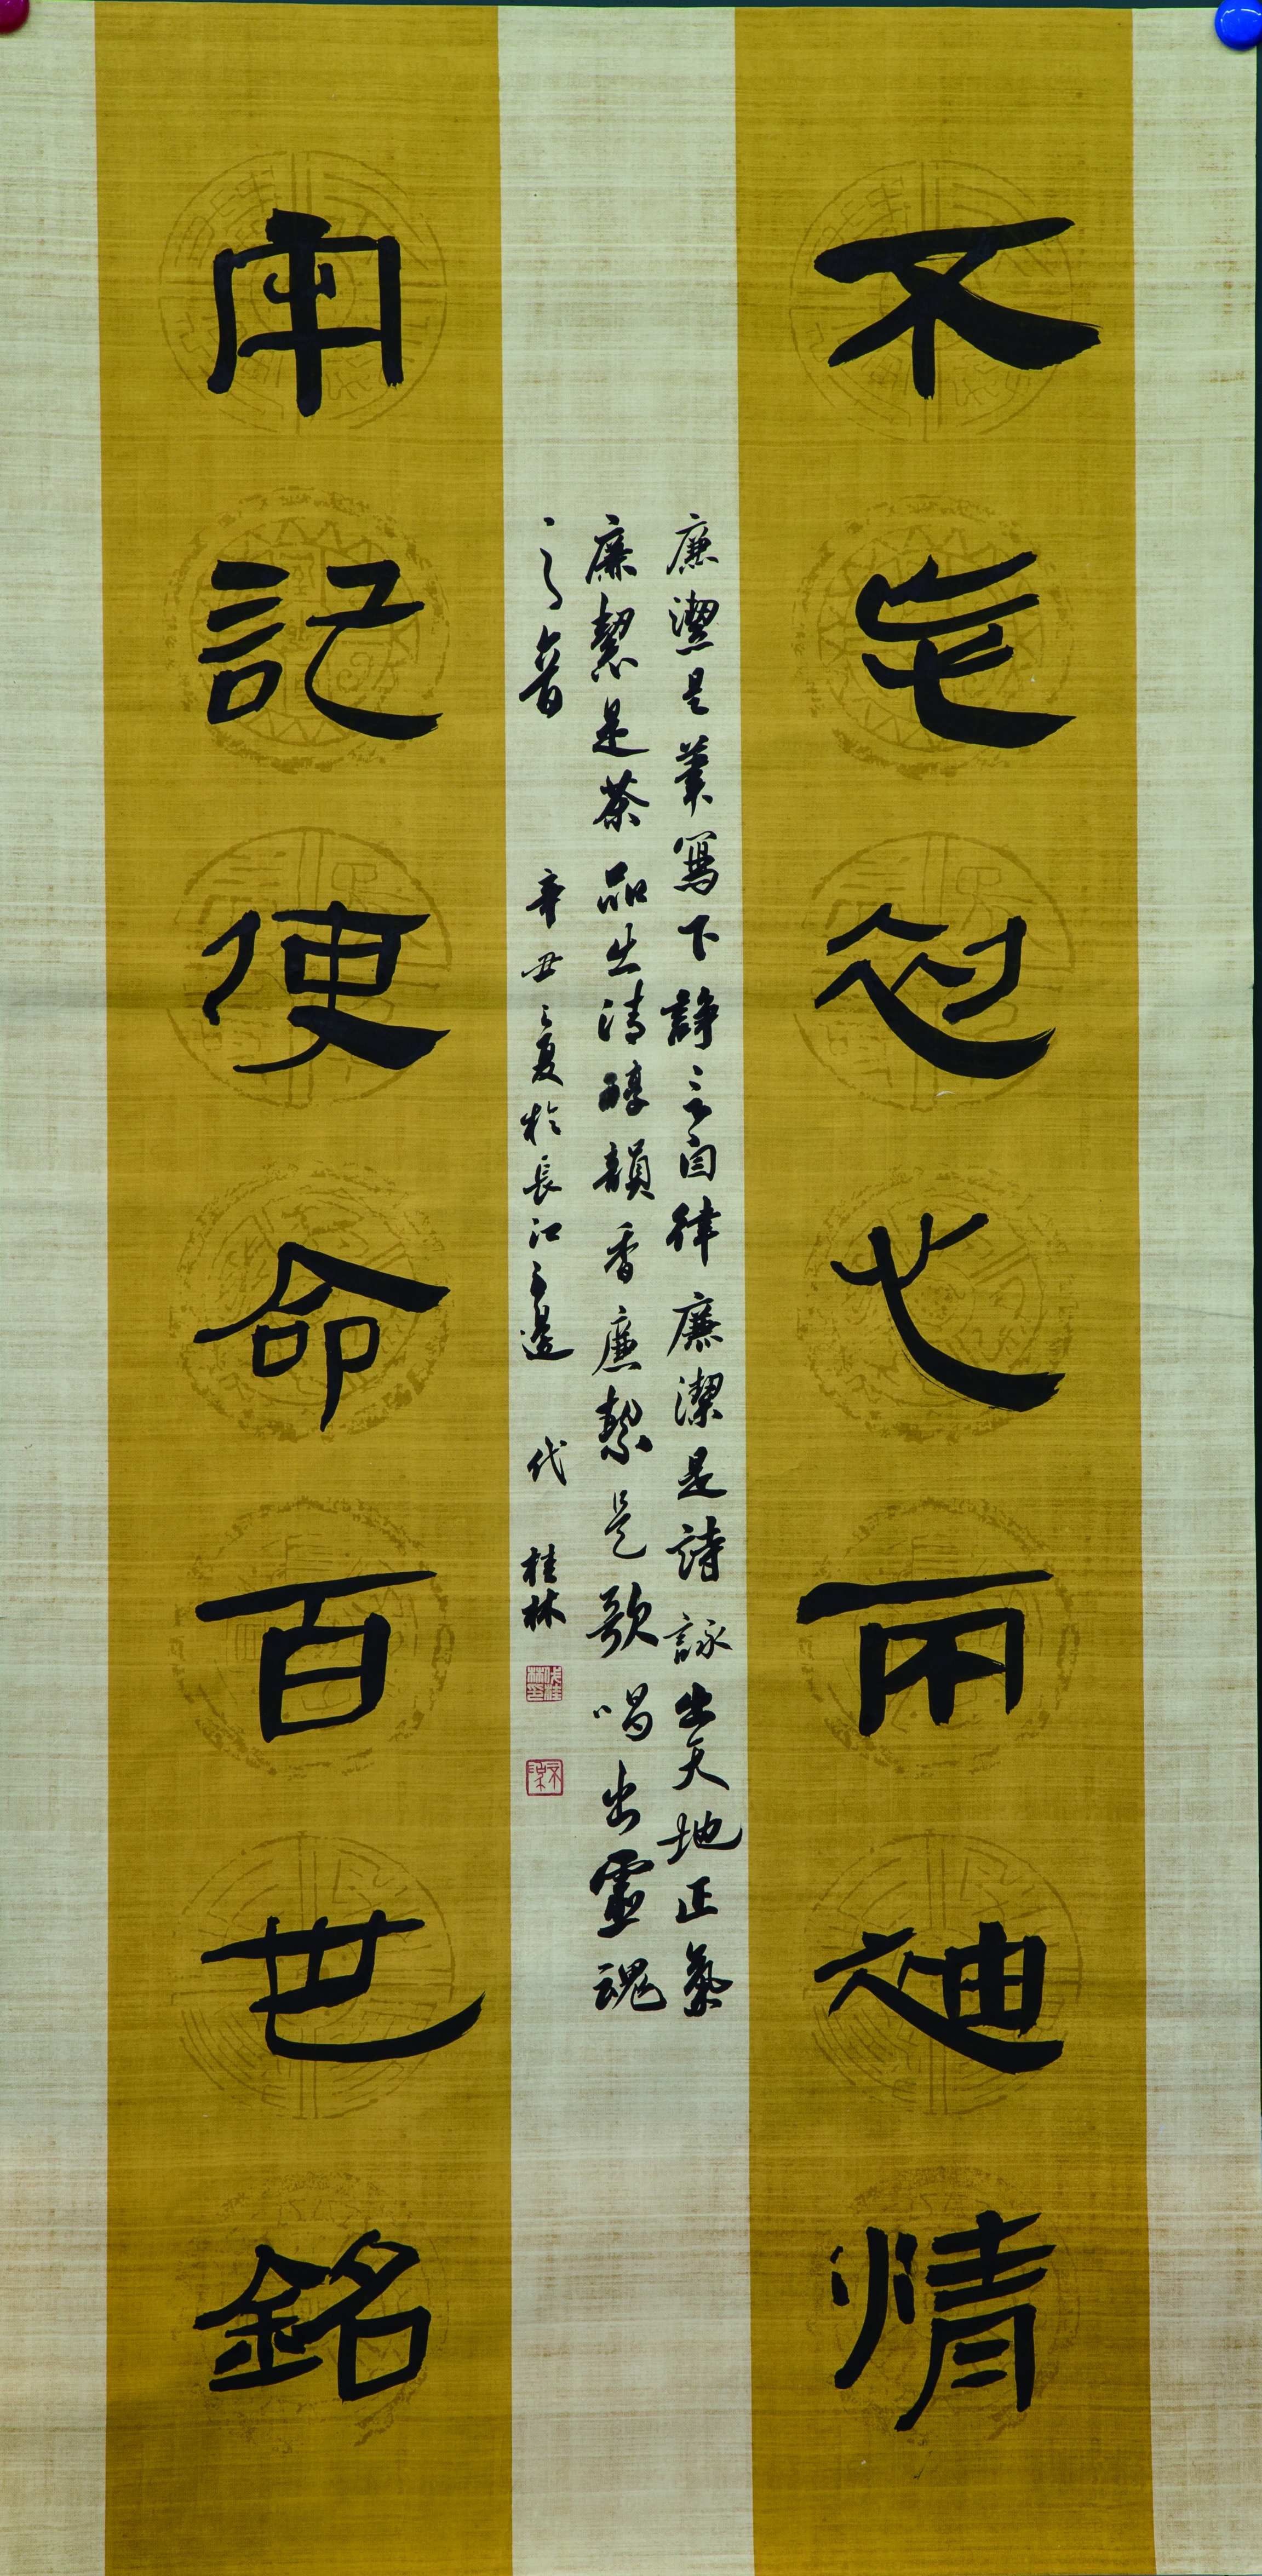 不忘初心迪情
廉潔是筆寫下諍言自律廉潔是詩詠出天地正氣
廉潔是茶品出清醇韻香廉潔是歌唱出靈魂
之音 辛丑之夏於長江之邊 代桂林
牢記使命百世銘